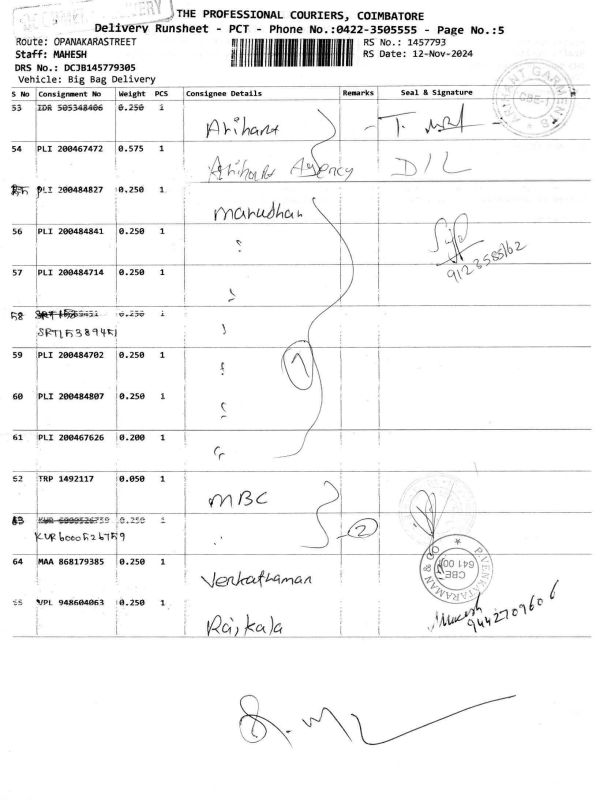 THE PROFESSIONAL COURIERS, COIMBATORE
Delivery Runsheet - PCT - Phone No.:0422-3505555 - Page No.:5
Route: OPANAKARASTREET
RS No.: 1457793
Staff: MAHESH
RS Date: 12-Nov-2024
DRS No.: DCJB145779305
Vehicle: Big Bag Delivery
S No Consignment No Weight PCS Consignee Details Remarks Seal & Signature
53 IDR 505348406 0.250 1 Arihant
54 PLI 200467472 0.575 1 Arihant Agency D/L
PLI 200484827 0.250 1 Marudhar
56 PLI 200484841 0.250 1
9123585162
57 PLI 200484714 0.250 1
58 0.250 1
SRT15389451
59 PLI 200484702 0.250 1
7
60 PLI 200484807 0.250 1
61 PLI 200467626 0.200 1
62 TRP 1492117 0.050 1 MBC
63 KUR 6000526759 0.250 1
KUR6000526759 2
64 MAA 868179385 0.250 1 Venkathaman
P.VENKATARAMAN & CO
CBE
641 001
VPL 948604063 0.250 1 Rajkala
Mukesh
9442709606